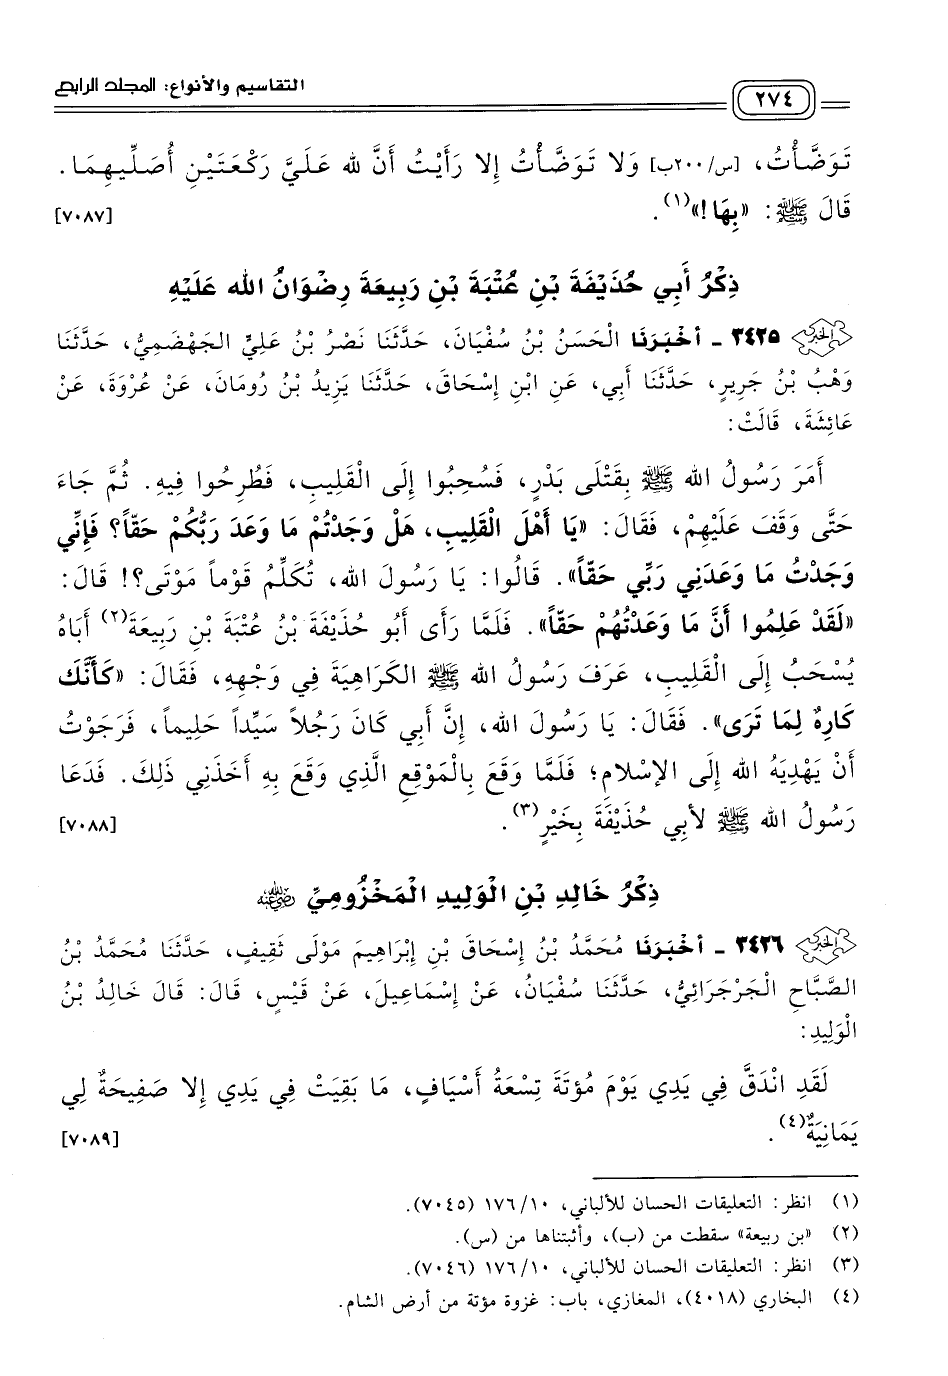 التقاسيم والأنواع: المجلد الرابع
٢٧٤
تَوَضَّأْتُ، [س/٢٠٠ب] وَلا تَوَضَّأْتُ إِلا رَأَيْتُ أَنَّ لله عَلَيَّ رَكْعَتَيْنِ أُصَلِّيهِمَا.
قَالَ ﷺ: «بِهَا!»(١). [٧٠٨٧]
ذِكْرُ أَبِي حُذَيْفَةَ بْنِ عُتْبَةَ بْنِ رَبِيعَةَ رِضْوَانُ الله عَلَيْهِ
الخبر ٣٤٢٥ - أَخْبَرَنَا الْحَسَنُ بْنُ سُفْيَانَ، حَدَّثَنَا نَصْرُ بْنُ عَلِيٍّ الجَهْضَمِيُّ، حَدَّثَنَا
وَهْبُ بْنُ جَرِيرٍ، حَدَّثَنَا أَبِي، عَنِ ابْنِ إِسْحَاقَ، حَدَّثَنَا يَزِيدُ بْنُ رُومَانَ، عَنْ عُرْوَةَ، عَنْ
عَائِشَةَ، قَالَتْ:
أَمَرَ رَسُولُ الله ﷺ بِقَتْلَى بَدْرٍ، فَسُحِبُوا إِلَى الْقَلِيبِ، فَطُرِحُوا فِيهِ. ثُمَّ جَاءَ
حَتَّى وَقَفَ عَلَيْهِمْ، فَقَالَ: «يَا أَهْلَ الْقَلِيبِ، هَلْ وَجَدْتُمْ مَا وَعَدَ رَبُّكُمْ حَقّاً؟ فَإِنِّي
وَجَدْتُ مَا وَعَدَنِي رَبِّي حَقّاً». قَالُوا: يَا رَسُولَ الله، تُكَلِّمُ قَوْماً مَوْتَى؟! قَالَ:
«لَقَدْ عَلِمُوا أَنَّ مَا وَعَدْتُهُمْ حَقّاً». فَلَمَّا رَأَى أَبُو حُذَيْفَةَ بْنُ عُتْبَةَ بْنِ رَبِيعَةَ(٢) أَبَاهُ
يُسْحَبُ إِلَى الْقَلِيبِ، عَرَفَ رَسُولُ الله ﷺ الكَرَاهِيَةَ فِي وَجْهِهِ، فَقَالَ: «كَأَنَّكَ
كَارِهٌ لِمَا تَرَى». فَقَالَ: يَا رَسُولَ الله، إِنَّ أَبِي كَانَ رَجُلاً سَيِّداً حَلِيماً، فَرَجَوْتُ
أَنْ يَهْدِيَهُ الله إِلَى الإسْلامِ؛ فَلَمَّا وَقَعَ بِالْمَوْقِعِ الَّذِي وَقَعَ بِهِ أَحْذَنِي ذَلِكَ. فَدَعَا
رَسُولُ الله ﷺ لأبِي حُذَيْفَةَ بِخَيْرٍ(٣). [٧٠٨٨]
ذِكْرُ خَالِدِ بْنِ الْوَلِيدِ الْمَخْزُومِيِّ رضي الله عنه
الخبر ٣٤٢٦ - أَخْبَرَنَا مُحَمَّدُ بْنُ إِسْحَاقَ بْنِ إِبْرَاهِيمَ مَوْلَى ثَقِيفٍ، حَدَّثَنَا مُحَمَّدُ بْنُ
الصَّبَّاحِ الْجَرْجَرَائِيُّ، حَدَّثَنَا سُفْيَانُ، عَنْ إِسْمَاعِيلَ، عَنْ قَيْسٍ، قَالَ: قَالَ خَالِدُ بْنُ
الْوَلِيدِ:
لَقَدِ انْدَقَّ فِي يَدِي يَوْمَ مُؤتَةَ تِسْعَةُ أَسْيَافٍ، مَا بَقِيَتْ فِي يَدِي إِلا صَفِيحَةٌ لِي
يَمَانِيَةٌ(٤). [٧٠٨٩]
(١) انظر: التعليقات الحسان للألباني، ١٠/ ١٧٦ (٧٠٤٥).
(٢) «بن ربيعة» سقطت من (ب)، وأثبتناها من (س).
(٣) انظر: التعليقات الحسان للألباني، ١٠/ ١٧٦ (٧٠٤٦).
(٤) البخاري (٤٠١٨)، المغازي، باب: غزوة مؤتة من أرض الشام.